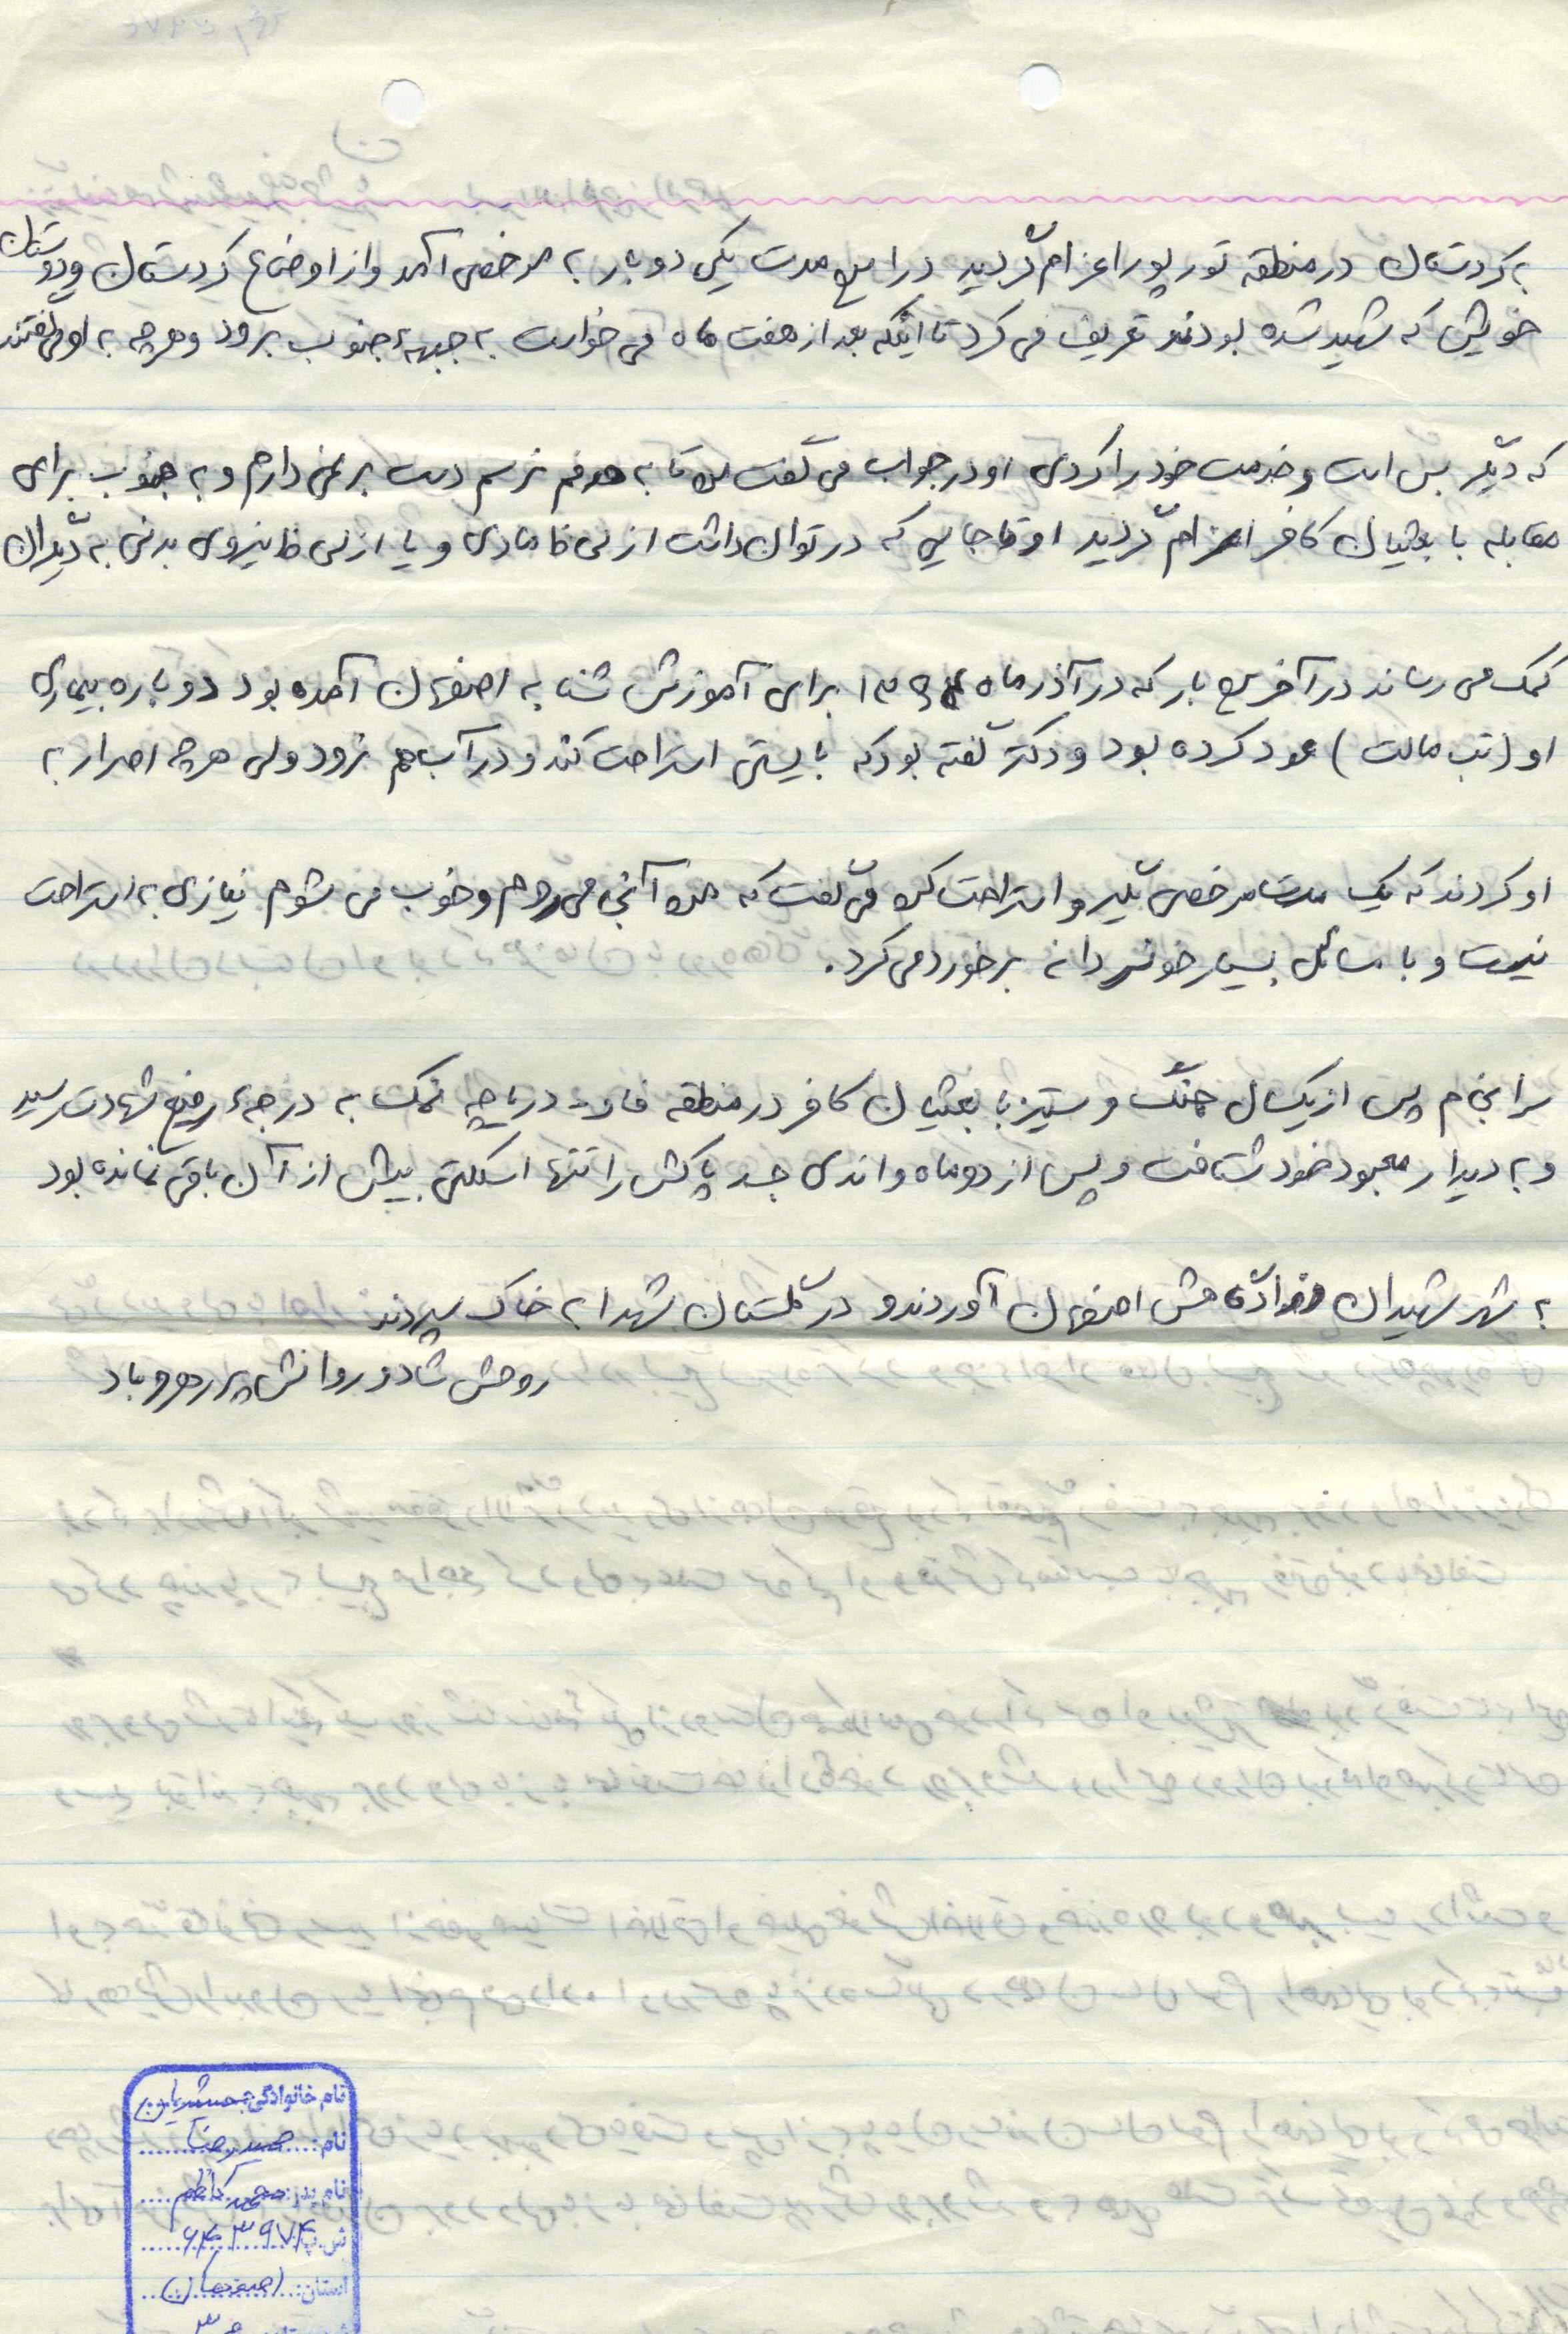 به کردستان در منطقه تورپور اعزام گردید در این مدت یکی دو بار به مرخصی آمد و از اوضاع کردستان و دوستان
خویش که شهید شده بودند تعریف می کرد تا اینکه بعد از هفت ماه می خواست به جبهه جنوب برود و هر چه به او می گفتند
که دیگر بس است و خدمت خود را کردی او در جواب می گفت من تا به هدفم نرسم دست بر نمی دارم و به جنوب برای
مقابله با بعثیان کافر اعزام گردید او تا جایی که در توان داشت از لحاظ مادی و یا از لحاظ نیروی بدنی به دیگران
کمک می رساند در آخرین بار که در آذر ماه ۱۳۶۴ برای آموزش شنا به اصفهان آمده بود دوباره بیماری
او (تب مالت) عود کرده بود و دکتر گفته بود که بایستی استراحت کند و در آب هم نرود ولی هر چه اصرار به
او کردند که یک مدت مرخصی بگیر و استراحت کن می گفت که من آنجا می روم و خوب می شوم نیازی به استراحت
نیست و با مسائل بسیار خونسردانه برخورد می کرد.
سرانجام پس از یکسال جنگ و ستیز با بعثیان کافر در منطقه فاو - دریاچه نمک به درجه رفیع شهادت رسید
و به دیدار معبود خود شتافت و پس از دو ماه و اندی جسد پاکش را تنها اسکلتی بیش از آن باقی نمانده بود
به شهر شهیدان زادگاهش اصفهان آوردند و در گلستان شهدا به خاک سپردند
روحش شاد و روانش پر درود باد
نام خانوادگی: جمشیدیان
نام: حمیدرضا
نام پدر: محمد کاظم
ش.پ: ۶۴۳۹۷۴
استان: اصفهان